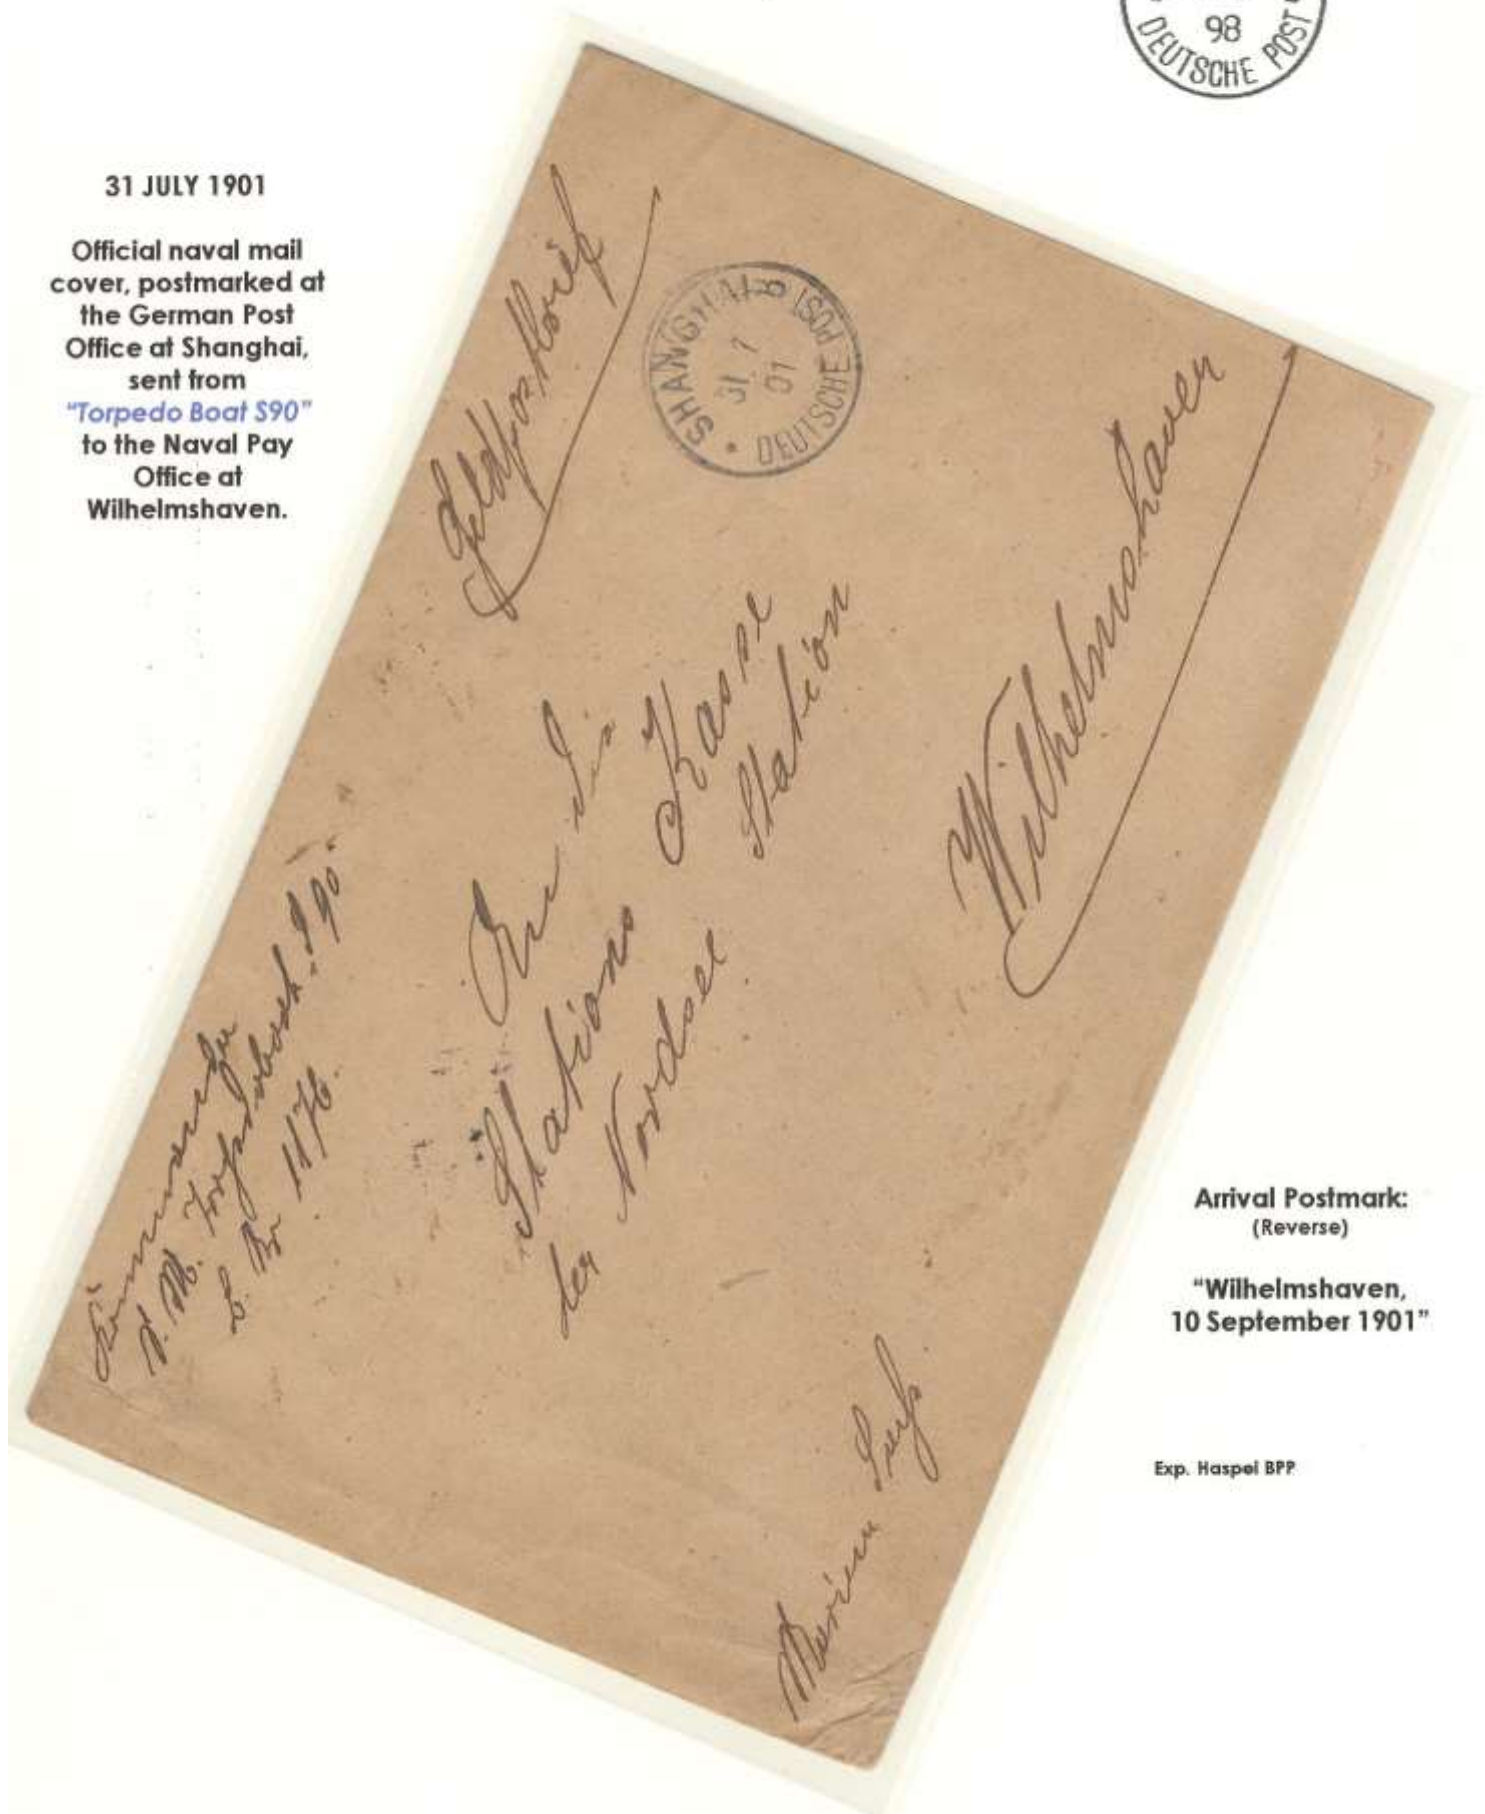 98
DEUTSCHE POST
31 JULY 1901
Official naval mail
cover, postmarked at
the German Post
Office at Shanghai,
sent from
"Torpedo Boat S90"
to the Naval Pay
Office at
Wilhelmshaven.
Feldpostbrief
SHANGHAI
31.7
01
DEUTSCHE POST
Kommando
S. M. Torpedoboot "S 90".
B. Nr 1176.
An die
Stations Kasse
der Nordsee Station
Wilhelmshaven
Marine
Arrival Postmark:
(Reverse)
"Wilhelmshaven,
10 September 1901"
Exp. Haspel BPP